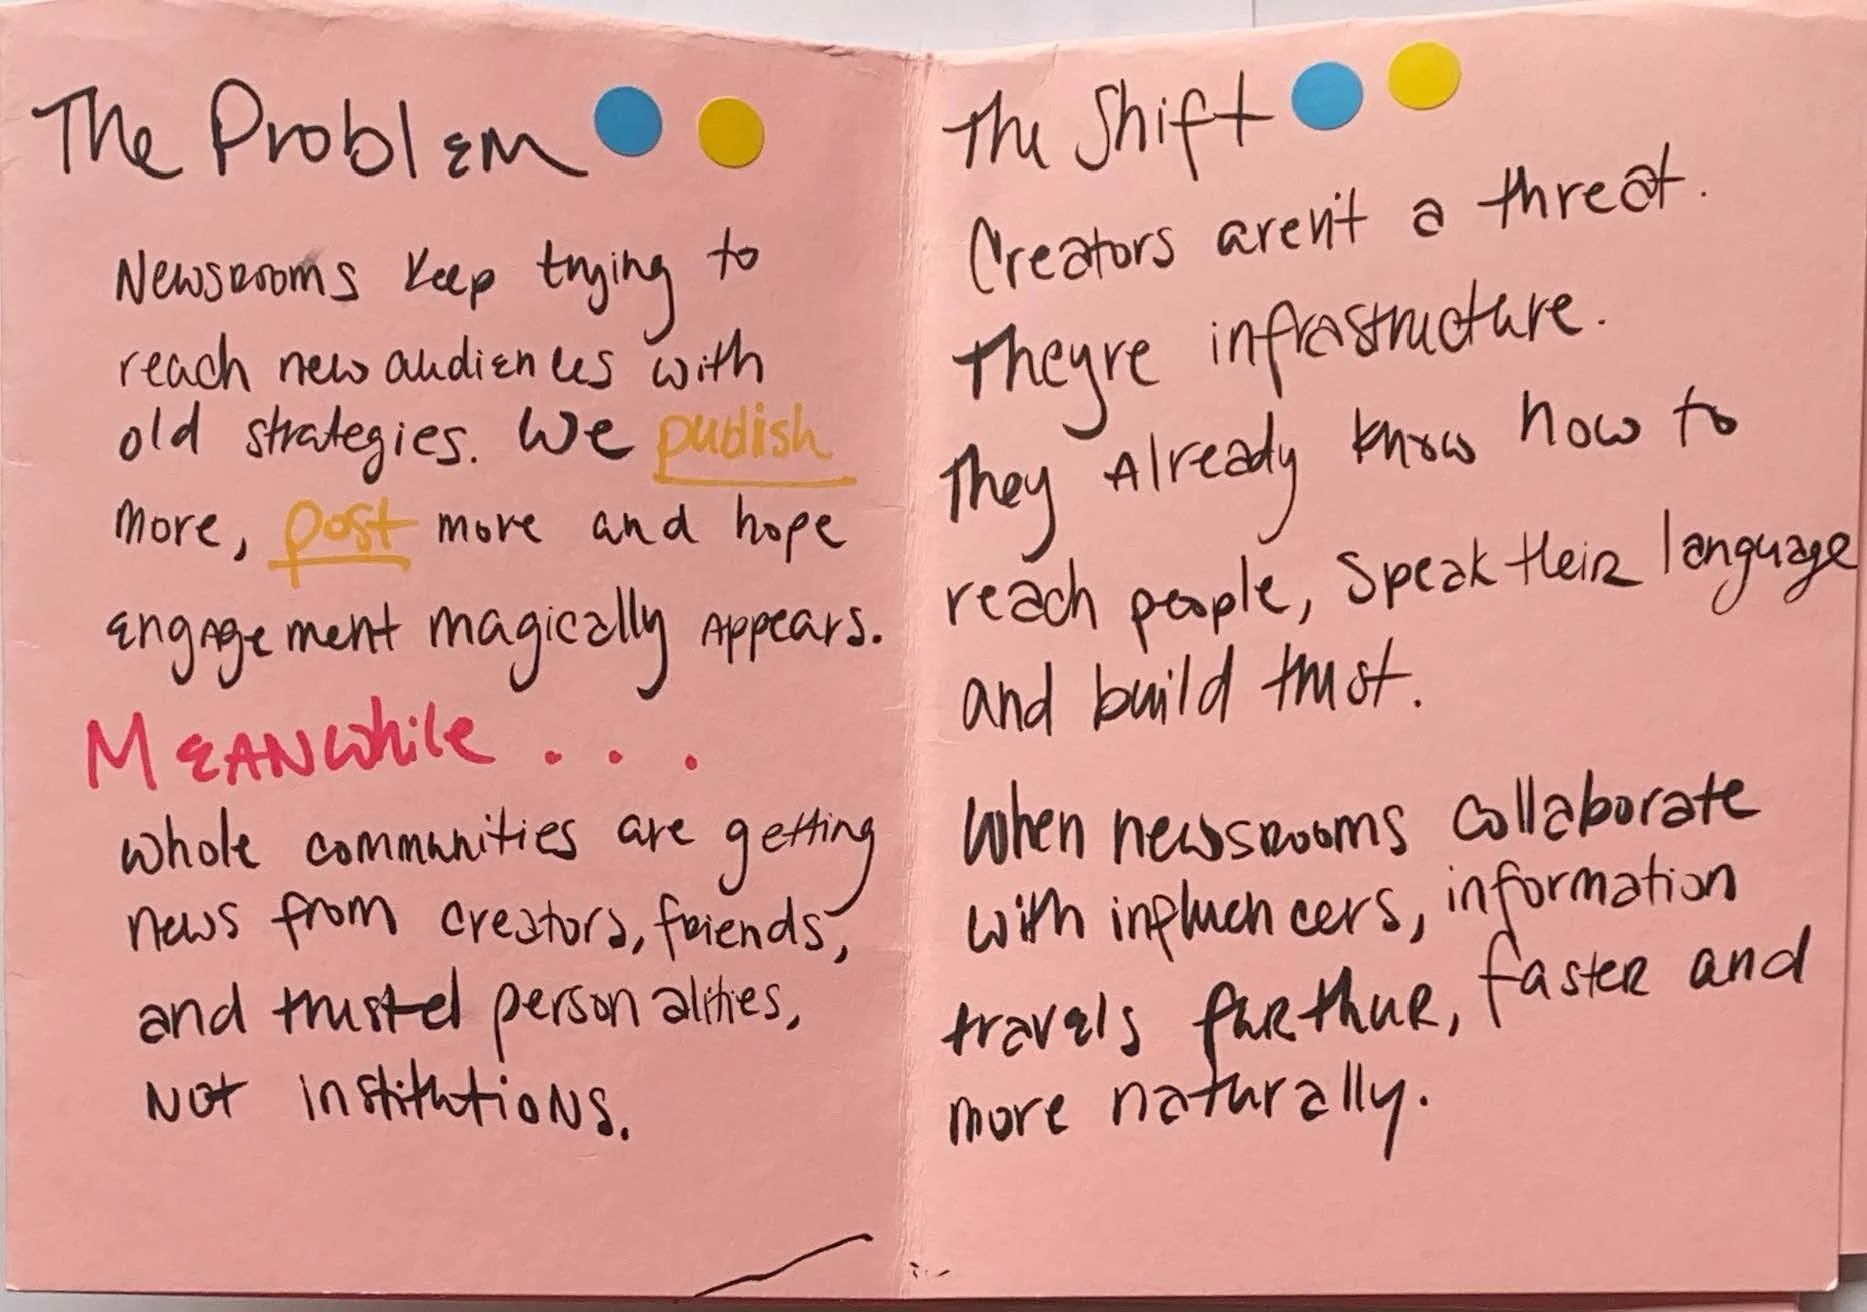 The Problem
Newsrooms keep trying to
reach new audiences with
old strategies. We publish
more, post more and hope
engagement magically appears.
MEANwhile . . .
whole communities are getting
news from creators, friends,
and trusted personalities,
NOT institutions.
The Shift
Creators aren't a threat.
Theyre infrastructure.
They Already know how to
reach people, speak their language
and build trust.
When newsrooms collaborate
with influencers, information
travels furthur, faster and
more naturally.